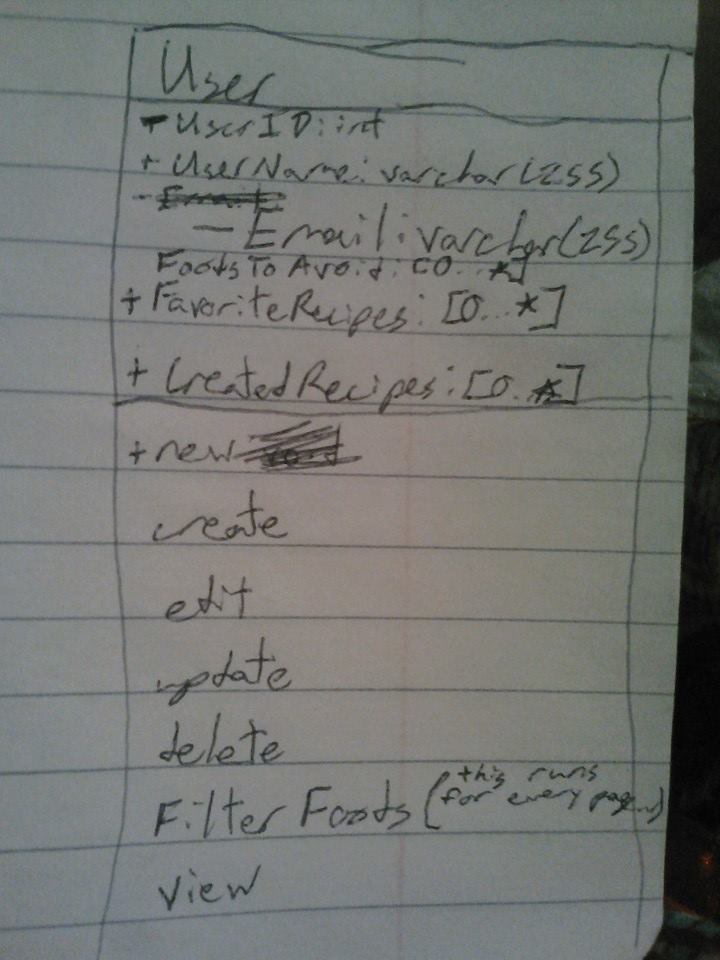 User
- UserID: int
+ UserName: varchar(255)
- Email
- Email: varchar(255)
FoodsToAvoid: [0...*]
+ FavoriteRecipes: [0...*]
+ CreatedRecipes: [0..*]
+ new
create
edit
update
delete
FilterFoods (this runs
for every page)
view